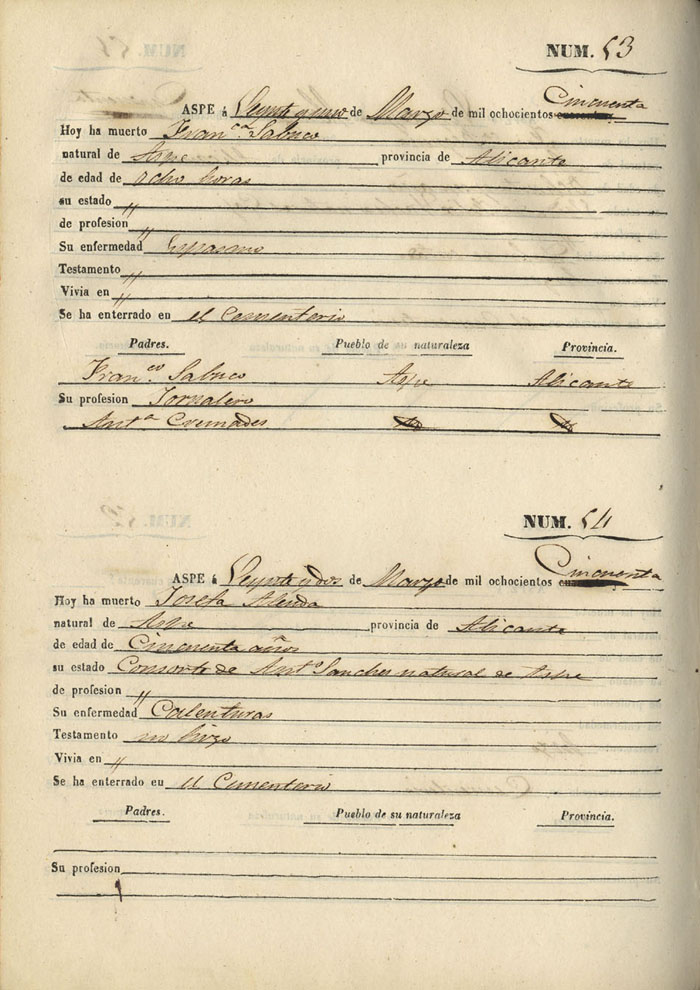 NUM. 53
ASPE á Veynte y uno de Marzo de mil ochocientos Cincuenta
Hoy ha muerto Fran.ca Sabuco
natural de Aspe provincia de Alicante
de edad de ocho horas
su estado "
de profesion "
Su enfermedad Espasmo
Testamento "
Vivia en "
Se ha enterrado en el Cementerio
Padres. Pueblo de naturaleza Provincia.
Fran.co Sabuco Aspe Alicante
Su profesion Jornalero
Ant.a Cremades
NUM. 54
ASPE á Veynte y dos de Marzo de mil ochocientos Cincuenta
Hoy ha muerto Josefa Alenda
natural de Aspe provincia de Alicante
de edad de Cincuenta años
su estado Consorte de Ant.o Sanchez natural de Aspe
de profesion "
Su enfermedad Calenturas
Testamento no hizo
Vivia en "
Se ha enterrado en el Cementerio
Padres. Pueblo de su naturaleza Provincia.
Su profesion